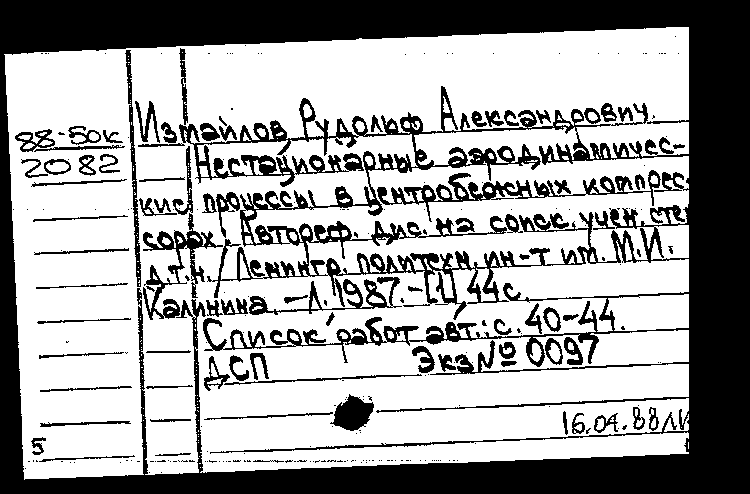 88-50к
2082
Измайлов Рудольф Александрович.
Нестационарные аэродинамичес-
кие процессы в центробежных компрес-
сорах: Автореф. дис. на соиск. учен. степ
д.т.н. / Ленингр. политехн. ин-т им. М.И.
Калинина. -Л. 1987.-[1], 44 с.
Список работ авт.: с. 40-44.
ДСП Экз № 0097
16.04.88
5